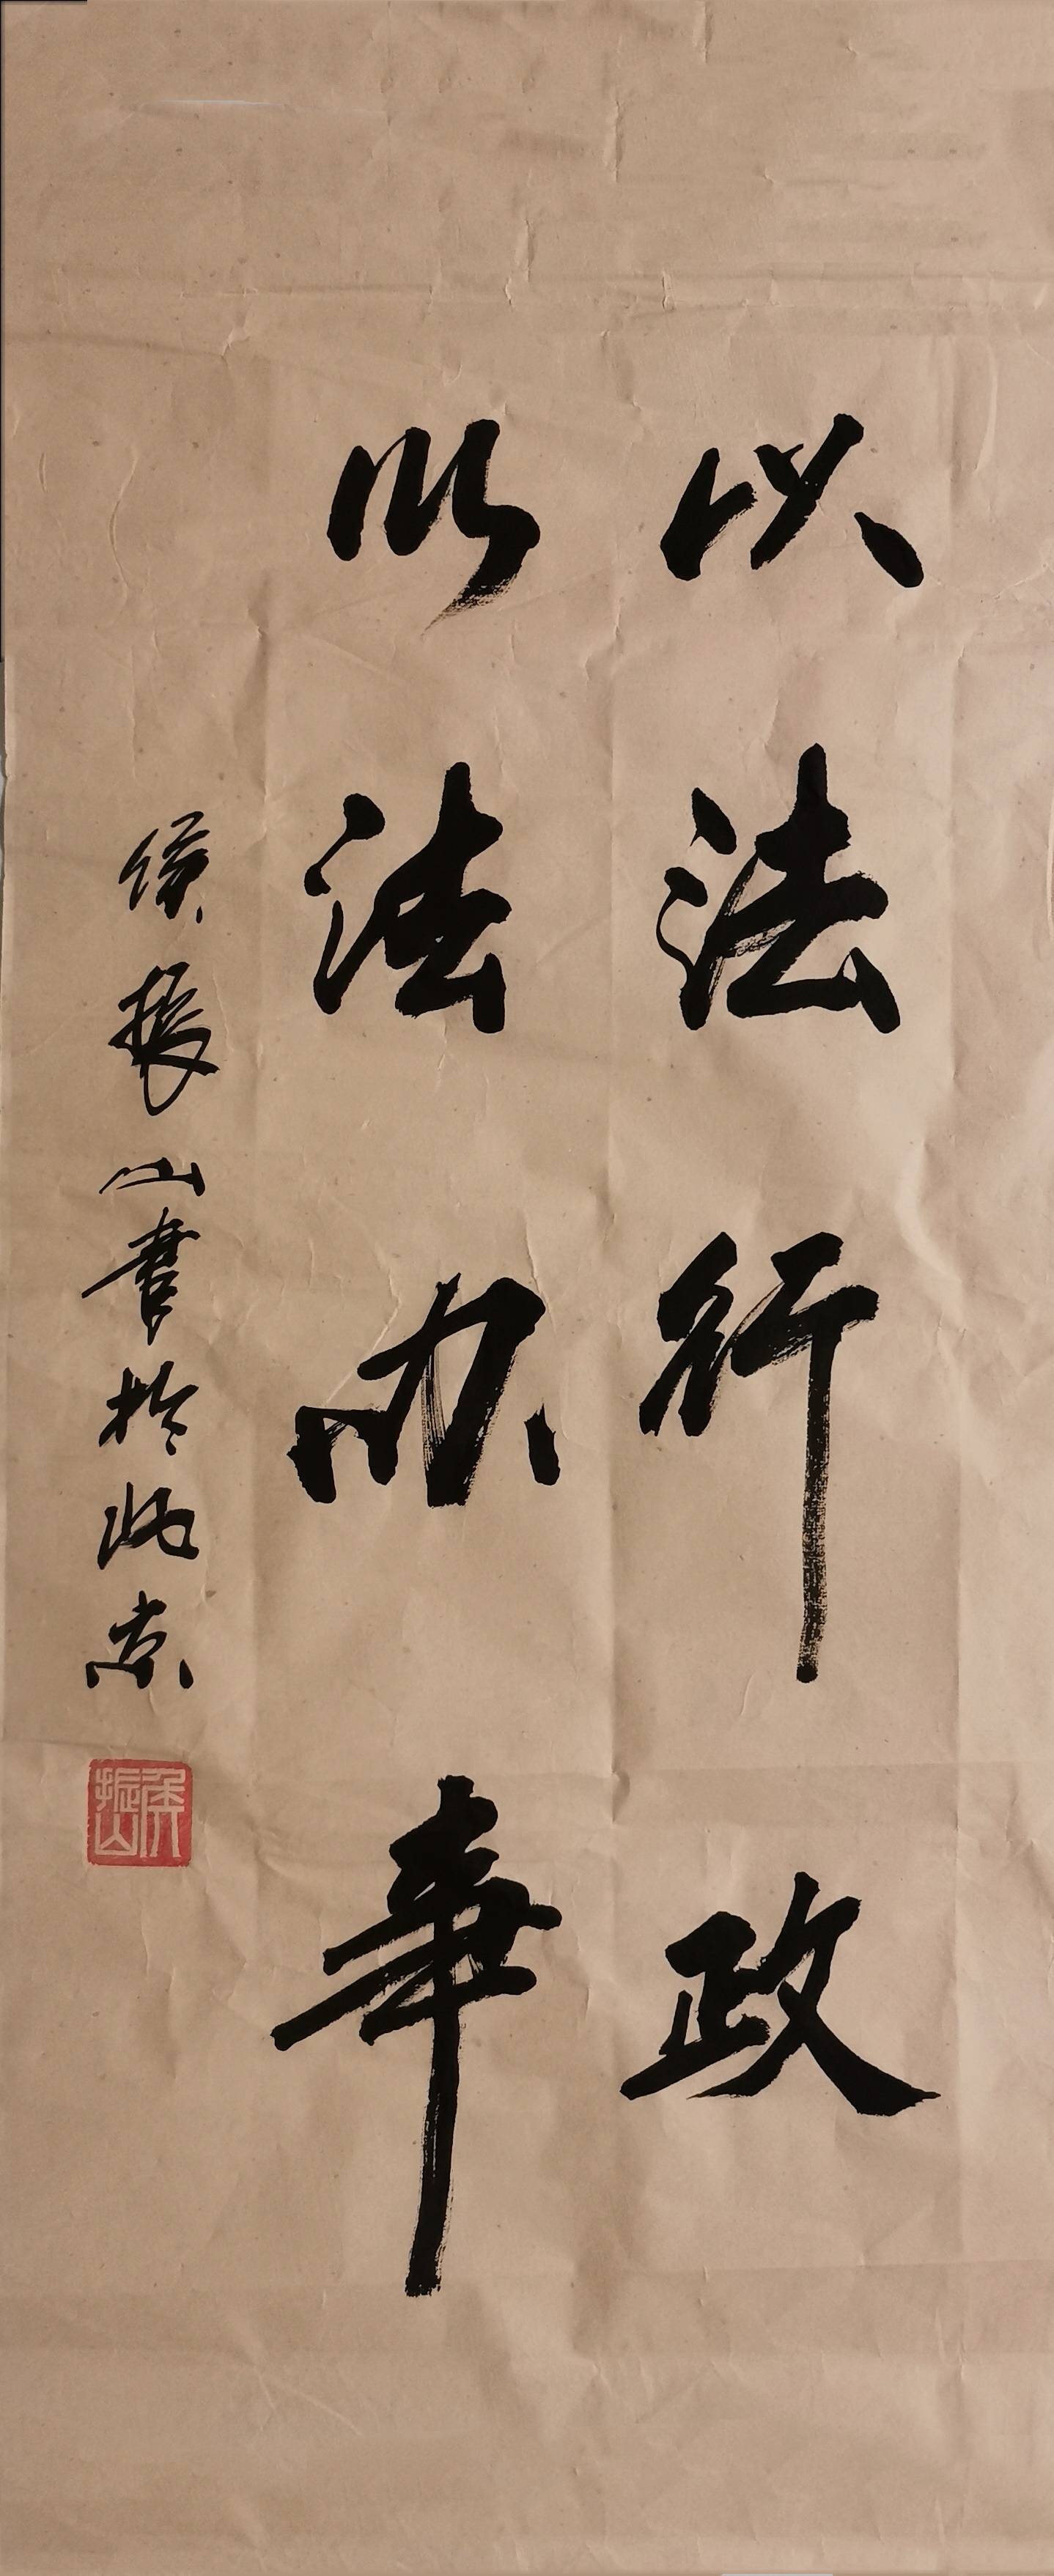 以法行政
以法办事
侯振山書於北京
侯振山